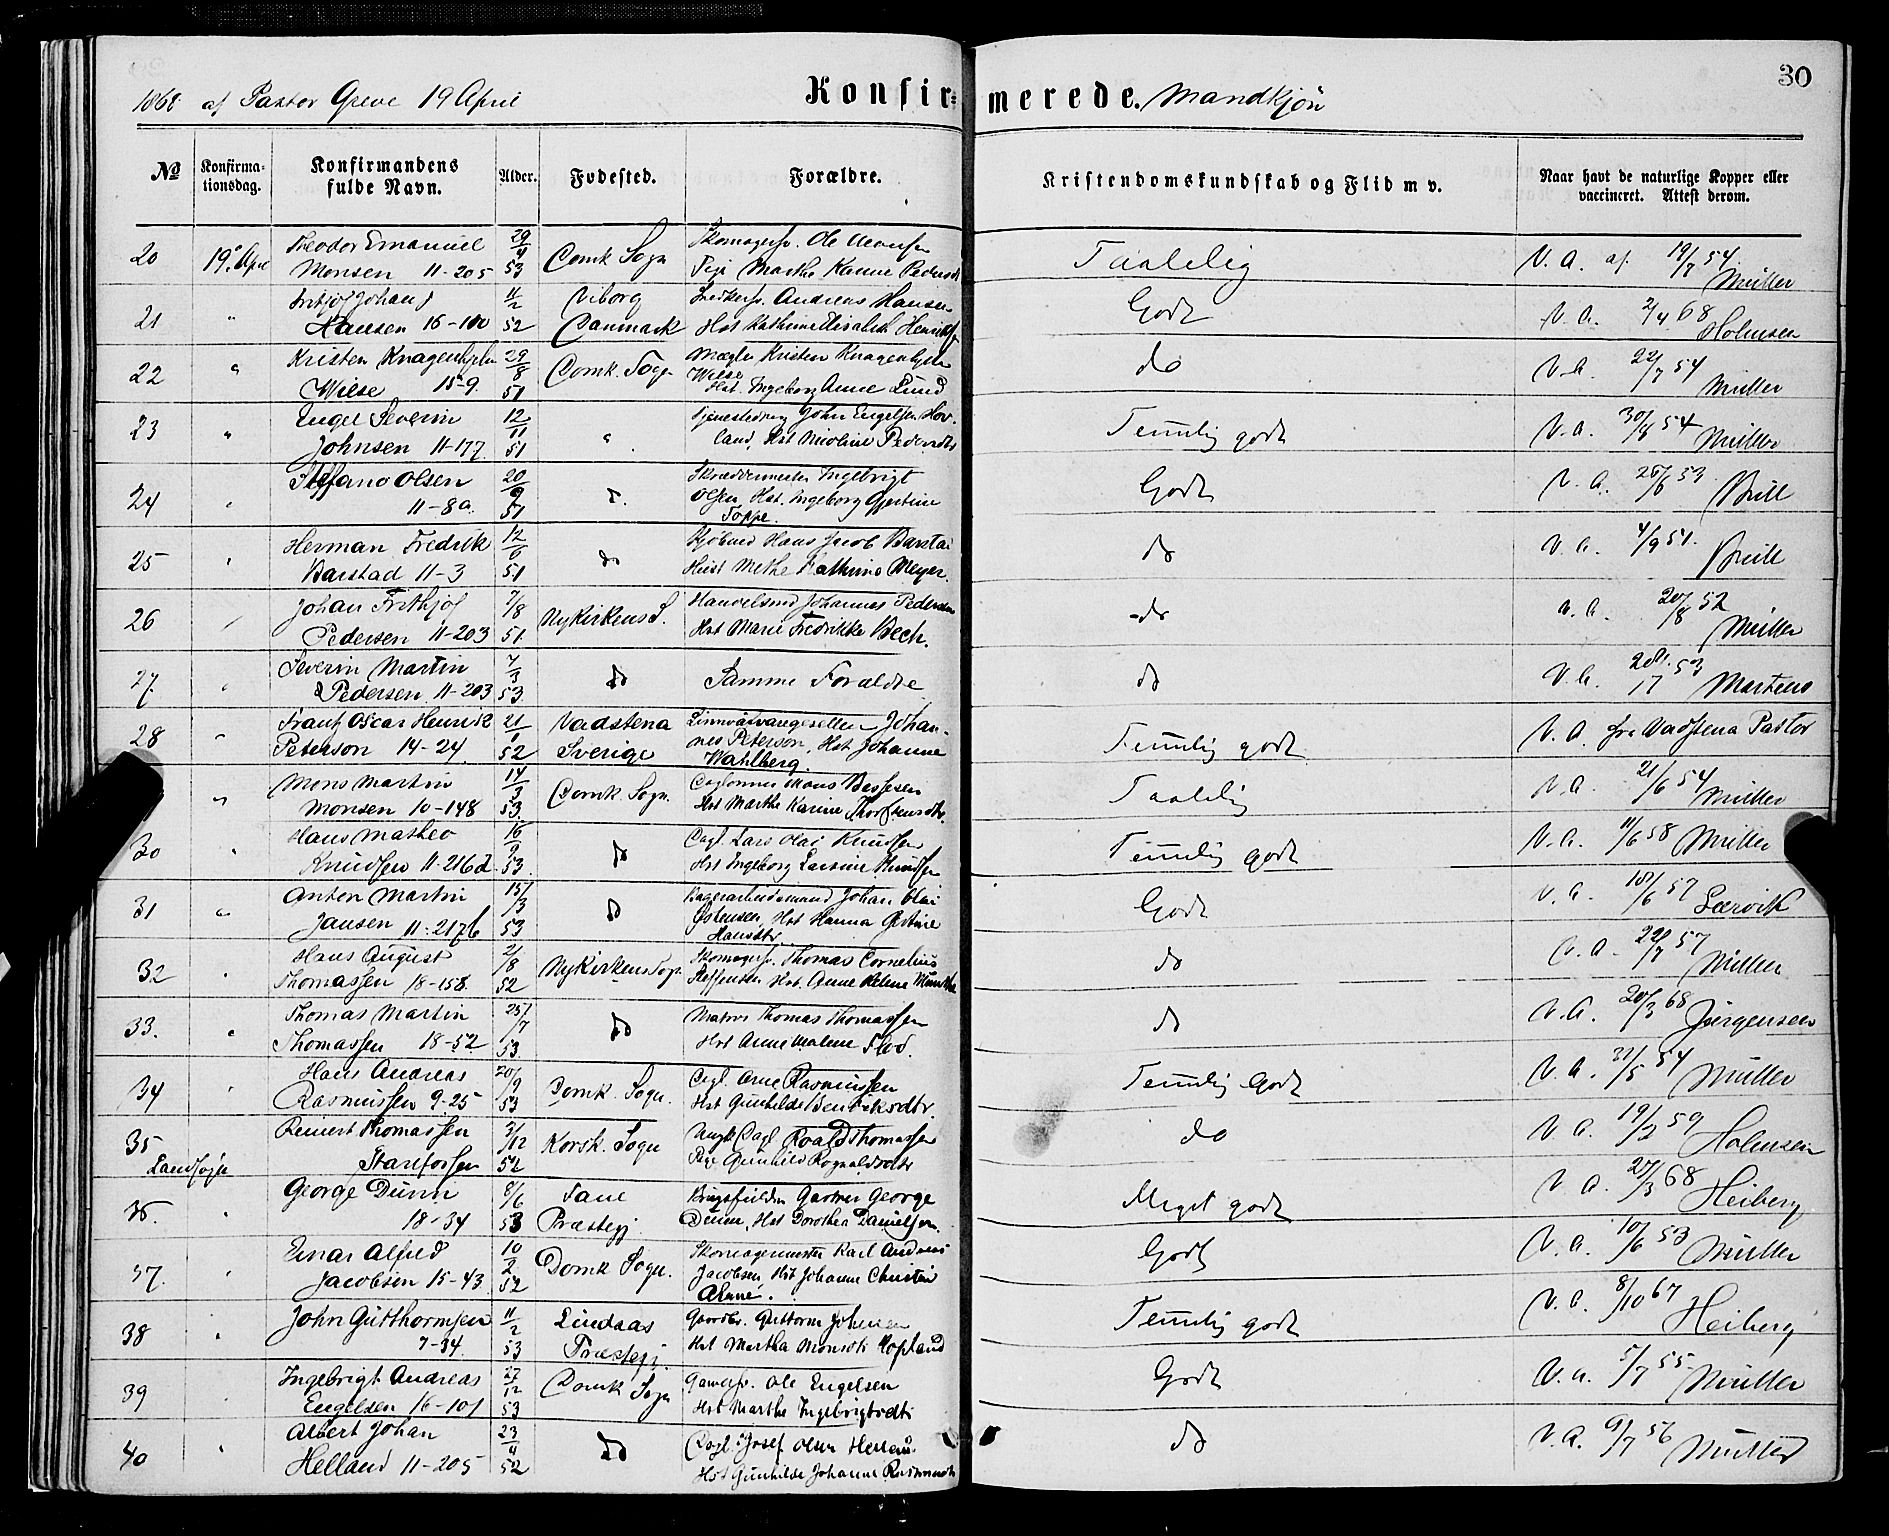 30
1868 af Pastor Greve 19 April Konfirmerede. Mandkjön
No Konfirmationsdag. Konfirmandens fulde Navn. Alder. Fodested. Forældre. Kristendomskundskab og Flid m v. Naar havt de naturlige Kopper eller vaccineret. Attest derom.
20 19. April Theodor Emanuel 29/4 Domk Sogn Skomagersv. Ole Taalelig V. A. af 19/7 54.
Monsen 11-205 53 Pige Marthe Karine Müller
21 " Fritjof Johan 11/2 Viborg Andreas Hansen Godt V. A. 2/4 68
Hansen 16-100 52 Danmark Hst Kathrine Elisabeth Holmsen
22 " Kristen Knagenhjelm 29/8 Domk. Sogn Mægler Kristen Knagenhjelm do V. A. 22/7 54
Wiese 15-9. 51 Wiese Hst. Ingeborg Anne Lund Müller
23 " Engel Severin 12/11 " John Engelsen Hov- Temlig godt V. A. 30/8 54
Johnsen 11-177. 51 land, Hst Nicoline Pedersdtr Müller
24 " Steffano Olsen 20/9 Skræddermester Ingebrigt Godt V. A.
11-8a. 51 Olsen Hst. Ingeborg Gjertine
Toppe.
25 " Herman Fredrik 12/6 do Hans Jacob Barstad do V. A. 4/9 51.
Barstad 11-3 51 Hust Methe Kathrine Meyer.
26 " Johan Frithjof 7/8 Ny Kirkens S. Handelsmd Johannes Pedersen do V. A. 20/8 52
Pedersen 11-203 51. Hst Marie Fredrikke Bech. Müller
27. " Severin Martin 7/3 do Samme Foraldre do V. A. 53
Pedersen 11-203 53. Martens
28 " Frantz Oscar Henrik 21/1 Vadstena Johan- Temlig godt V. A. fra Vadstena Pastor
Peterson 14-24. 52 Sverige nes Peterson, Hst Johanne
Wahlberg.
" Mons Martin 14/3 Domk. Sogn. Mons Taalelig V. A. 21/6 54
Monsen 10-148 53. Hst Marthe Karine Müller
30 " Hans Matheo 16/9 do Dagl. Lars Olai Knudsen Temlig godt V. A. 11/6 58 Müller
Knudsen 11-216d. 53. Hst Ingeborg Larsine Knudsen
31 " Anton Martin 15/3 do Johan Olai Godt V. A. 18/6 57
Jansen 11-217b 53 Østensen, Hst Hanna Gjertine Lærvik
Hansdtr.
32 " Hans August 21/8 Nykirkens Sogn Skomagersv. Thomas Cornelius do V. A. 22/7 57
Thomassen 18-158. 52 Steffensen Hst. Anne Helene Müller
33. " Thomas Martin 25/7 do Matros Thomas Thomassen do V. A. 20/3 68
Thomassen 18-52 53. Hst Anne Malene Jürgensen
34 " Hans Andreas 20/9 Domk. Sogn. Dagl. Arne Rasmussen Temlig Godt V. A. 31/5 54
Rasmussen 9-25 53 Hst Gunhilde Bendiksdtr. Müller
35 Reinert Thomassen 3/12 Korsk. Sogn Ungk Dagl Roald Thomassen do V. A. 19/2 59
Landsogn 52 Pige Gunhild Rognaldsdtr Holmsen
36. " George Dünn 8/6 Fane Gartner George Meget godt V. A. 27/3 68
18-34 53 Præstegj Dünn, Hst Dorothea Danielsen. Heiberg
37. " Einar Alfred 10/2 Domk Sogn. Skomagermester Karl Andreas Godt V. A. 10/6 53
Jacobsen 15-43. 52 Jacobsen, Hst Johanne Christine Müller
38 " John Gütthormsen 11/2 Lindaas Gaardbr. Guttorm Johnsen Temlig godt V. A. 8/10 67
7-34. 53 Præstegj. Hst Martha Monsdt Hopland Heiberg
39 " Ingebrigt Andreas 27/12 Domk Sogn Ole Engelsen Godt V. A. 5/7 55
Engelsen 16-101 53 Hst Marthe Ingebrigtsdt Müller
40 " Albert Johan 23/4 do Dagl. Josef Olsen Helland do V. A. 9/7 56
Helland 11-205 52 Hst Gunhilde Johanne Müller